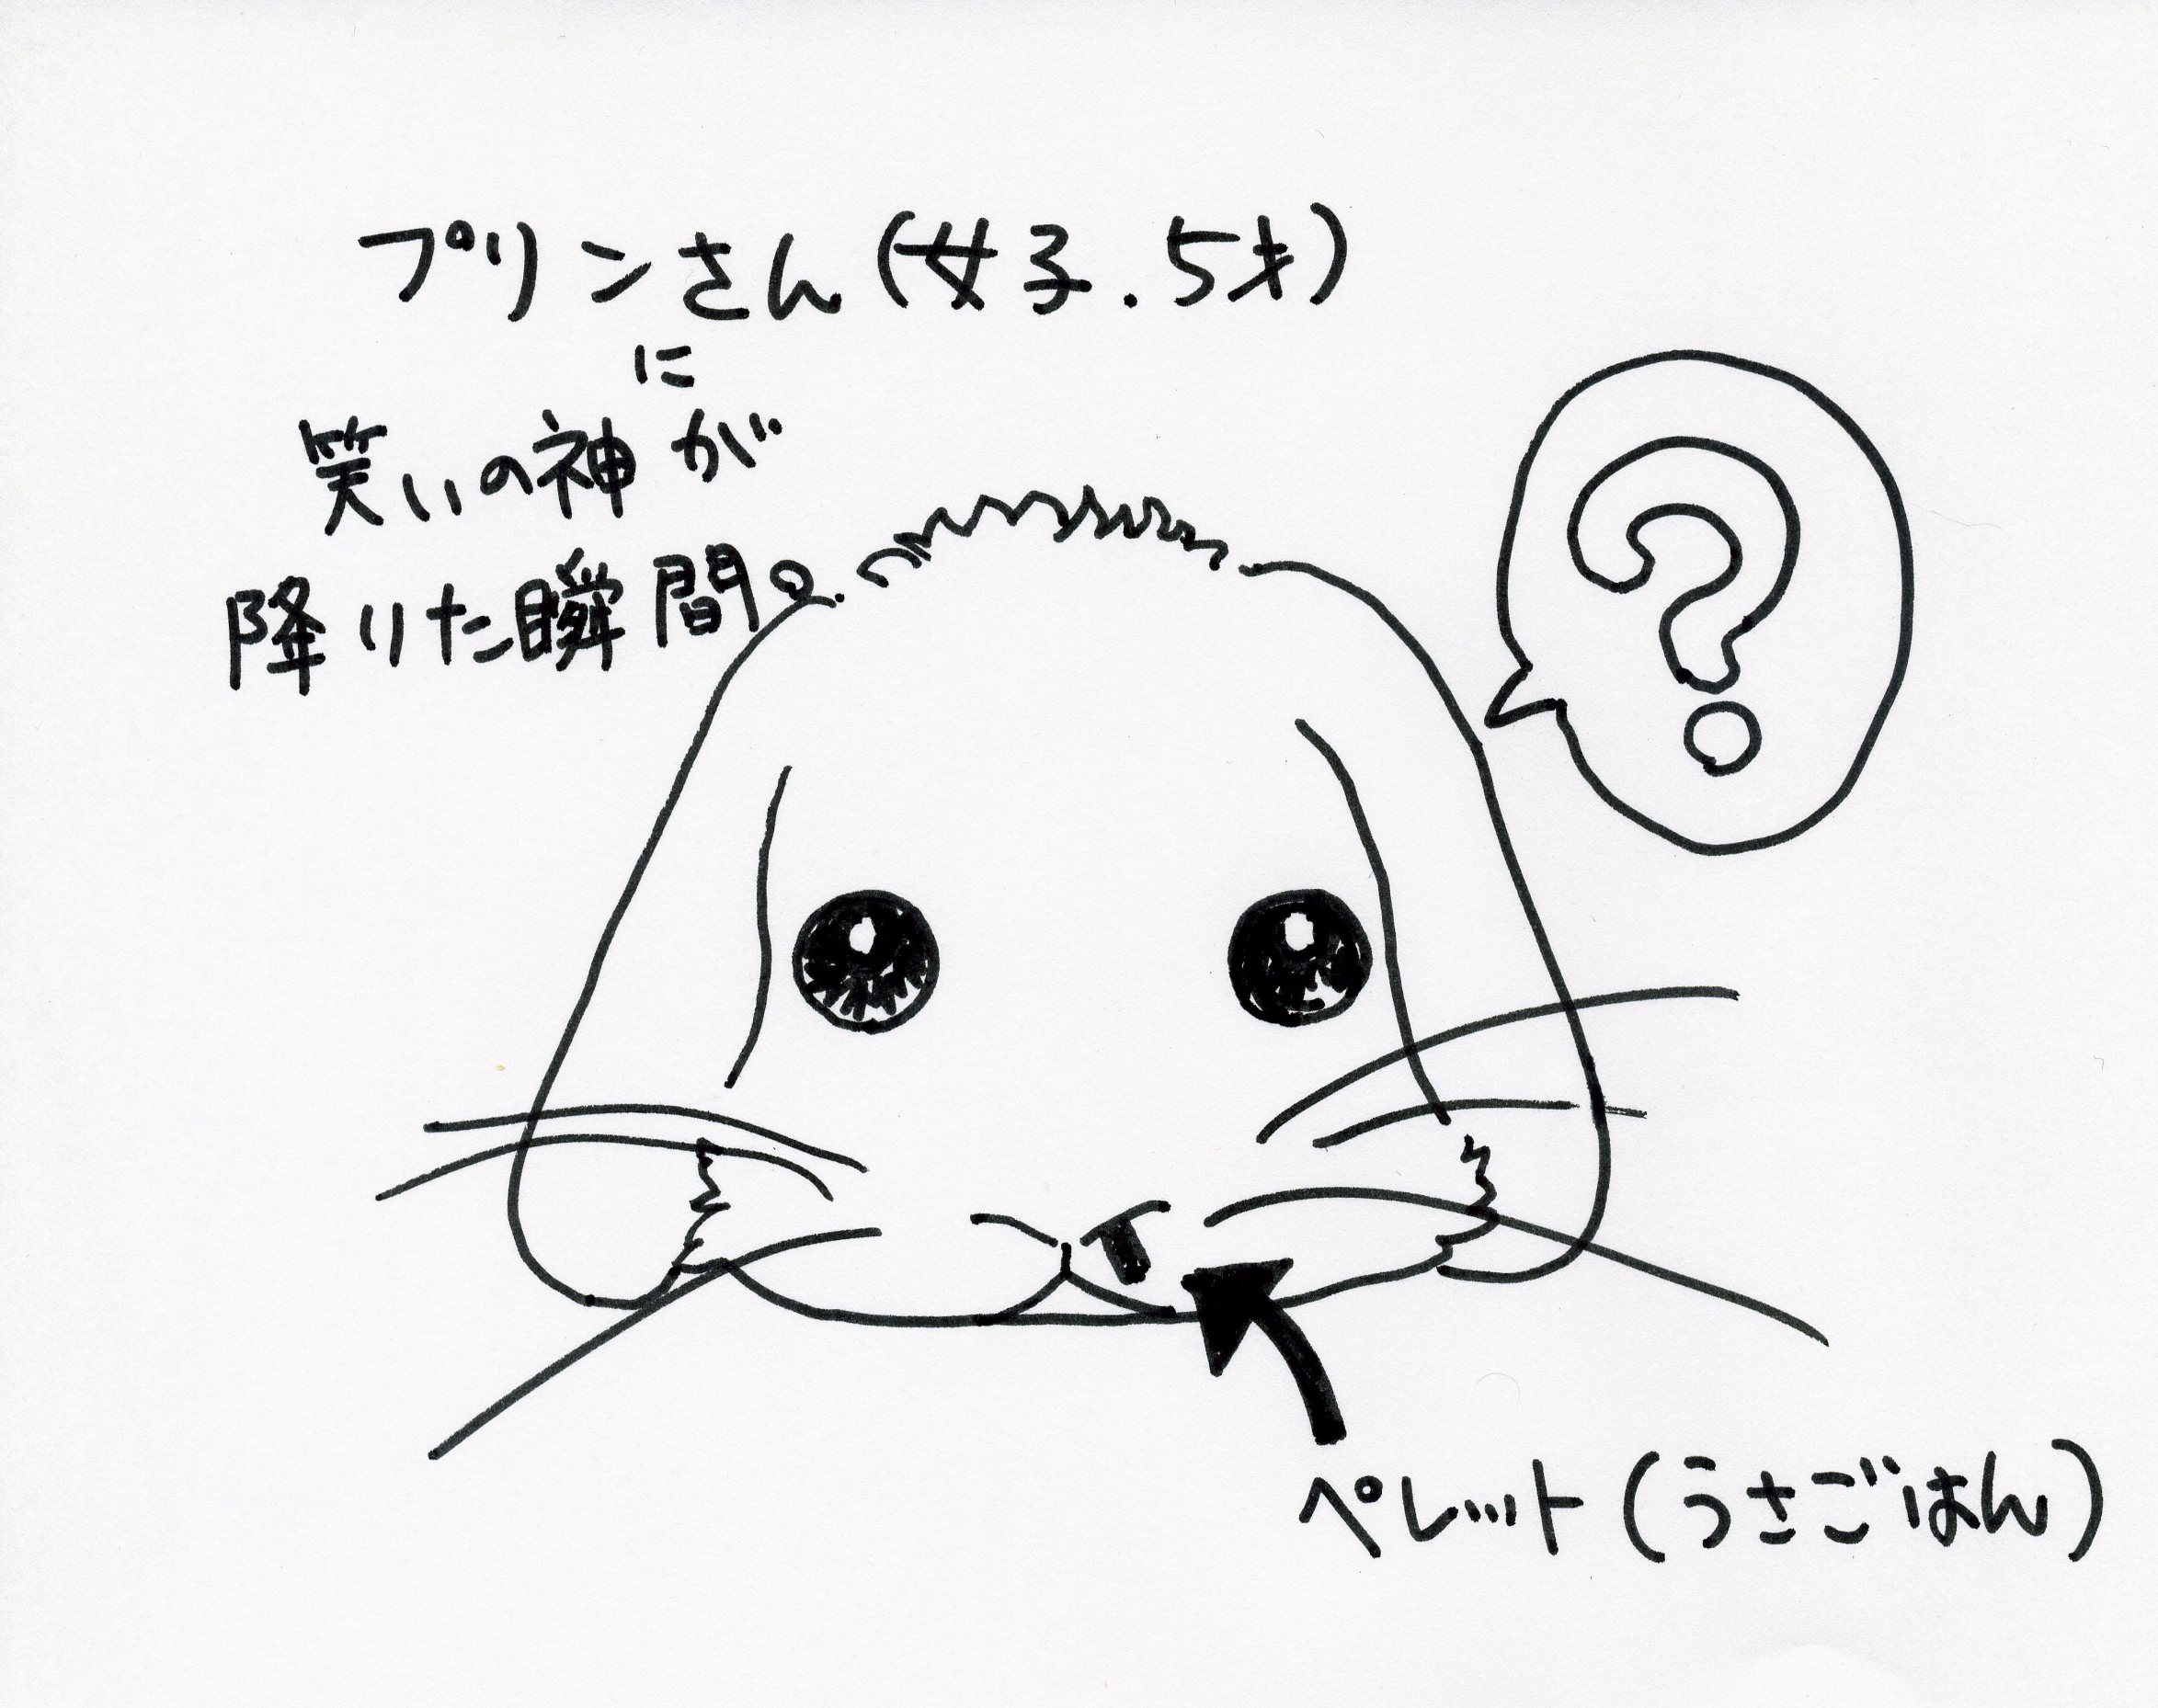 プリンさん(女子.5才)
に
笑いの神が
降りた瞬間。
?
ペレット(うさごはん)